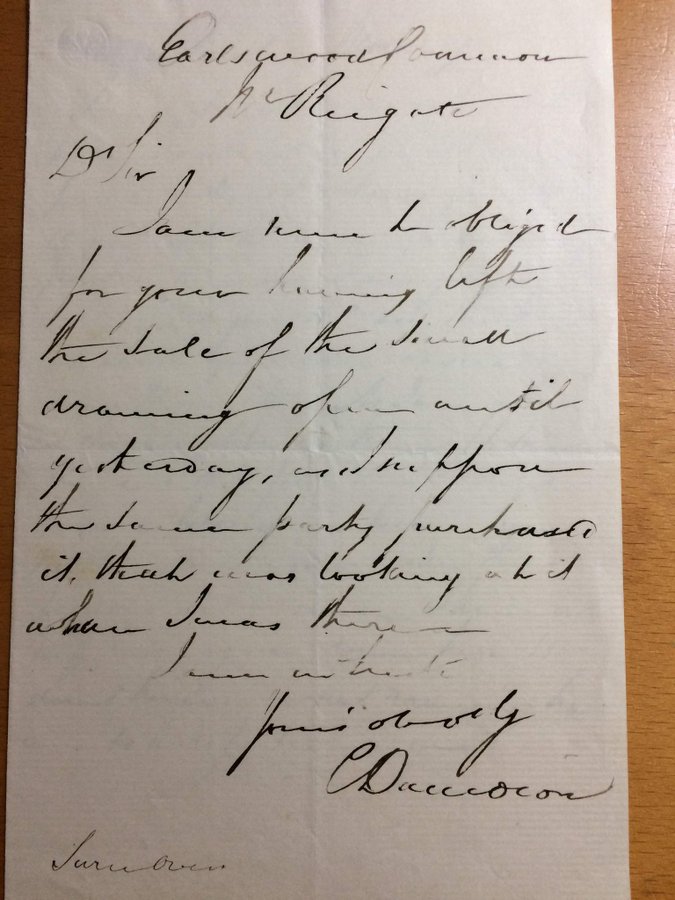 Earlswood Common
Nr Reigate
Dr Sir
I am much obliged
for your having left
the sale of the small
drawing open until
yesterday, and suppose
the same party purchased
it, that was looking at it
when I was there
I am in haste
Yours obedly
C Davidson
Turn Over